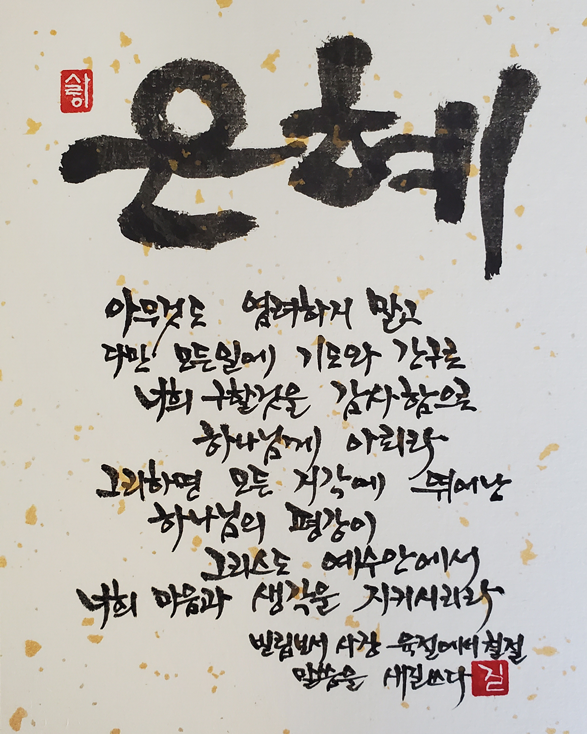 은혜
아무것도 염려하지 말고
다만 모든일에 기도와 간구로
너희 구할것을 감사함으로
하나님께 아뢰라
그리하면 모든 지각에 뛰어난
하나님의 평강이
그리스도 예수안에서
너희 마음과 생각을 지키시리라
빌립보서 사장 육절에서 칠절
말씀을 새길쓰다
길